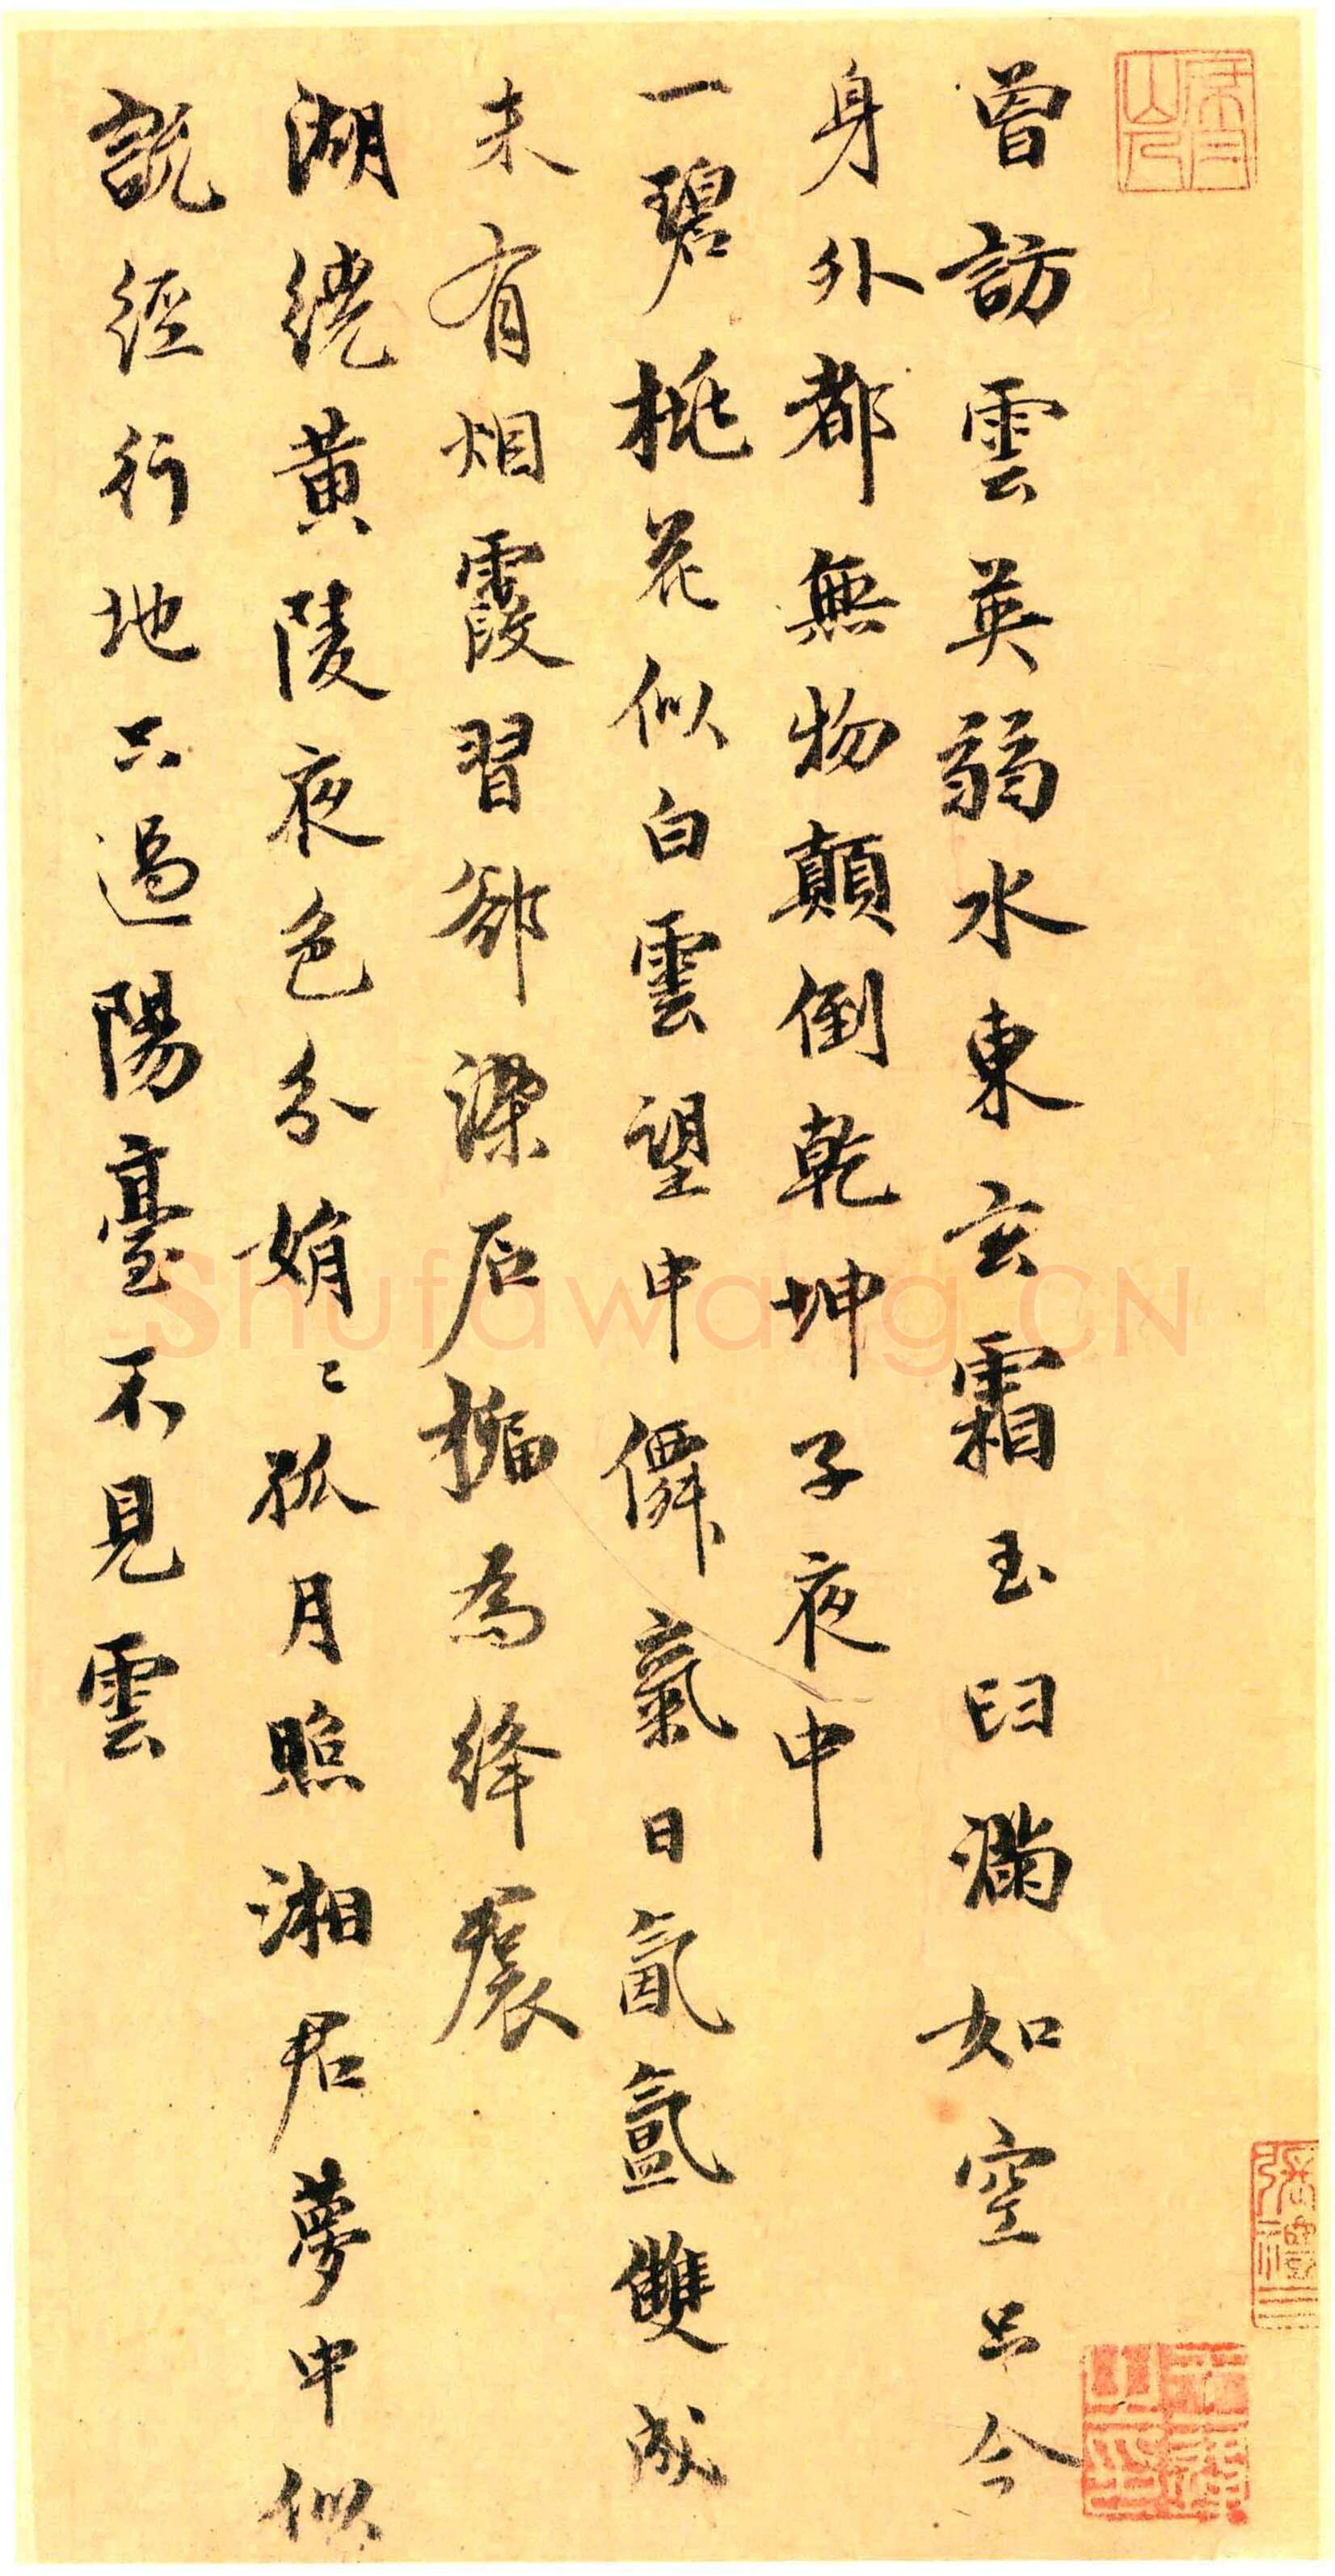 曾訪雲英弱水東玄霜玉臼濿如空只今
身外都無物顛倒乾坤子夜中
一碧桃花似白雲望中僊氣日氤氳雙成
未有烟霞習郤染后褊為絳裠
湖繞黃陵夜色分娟〻孤月照湘君夢中似
說經行地只過陽臺不見雲
Shufawang.CN